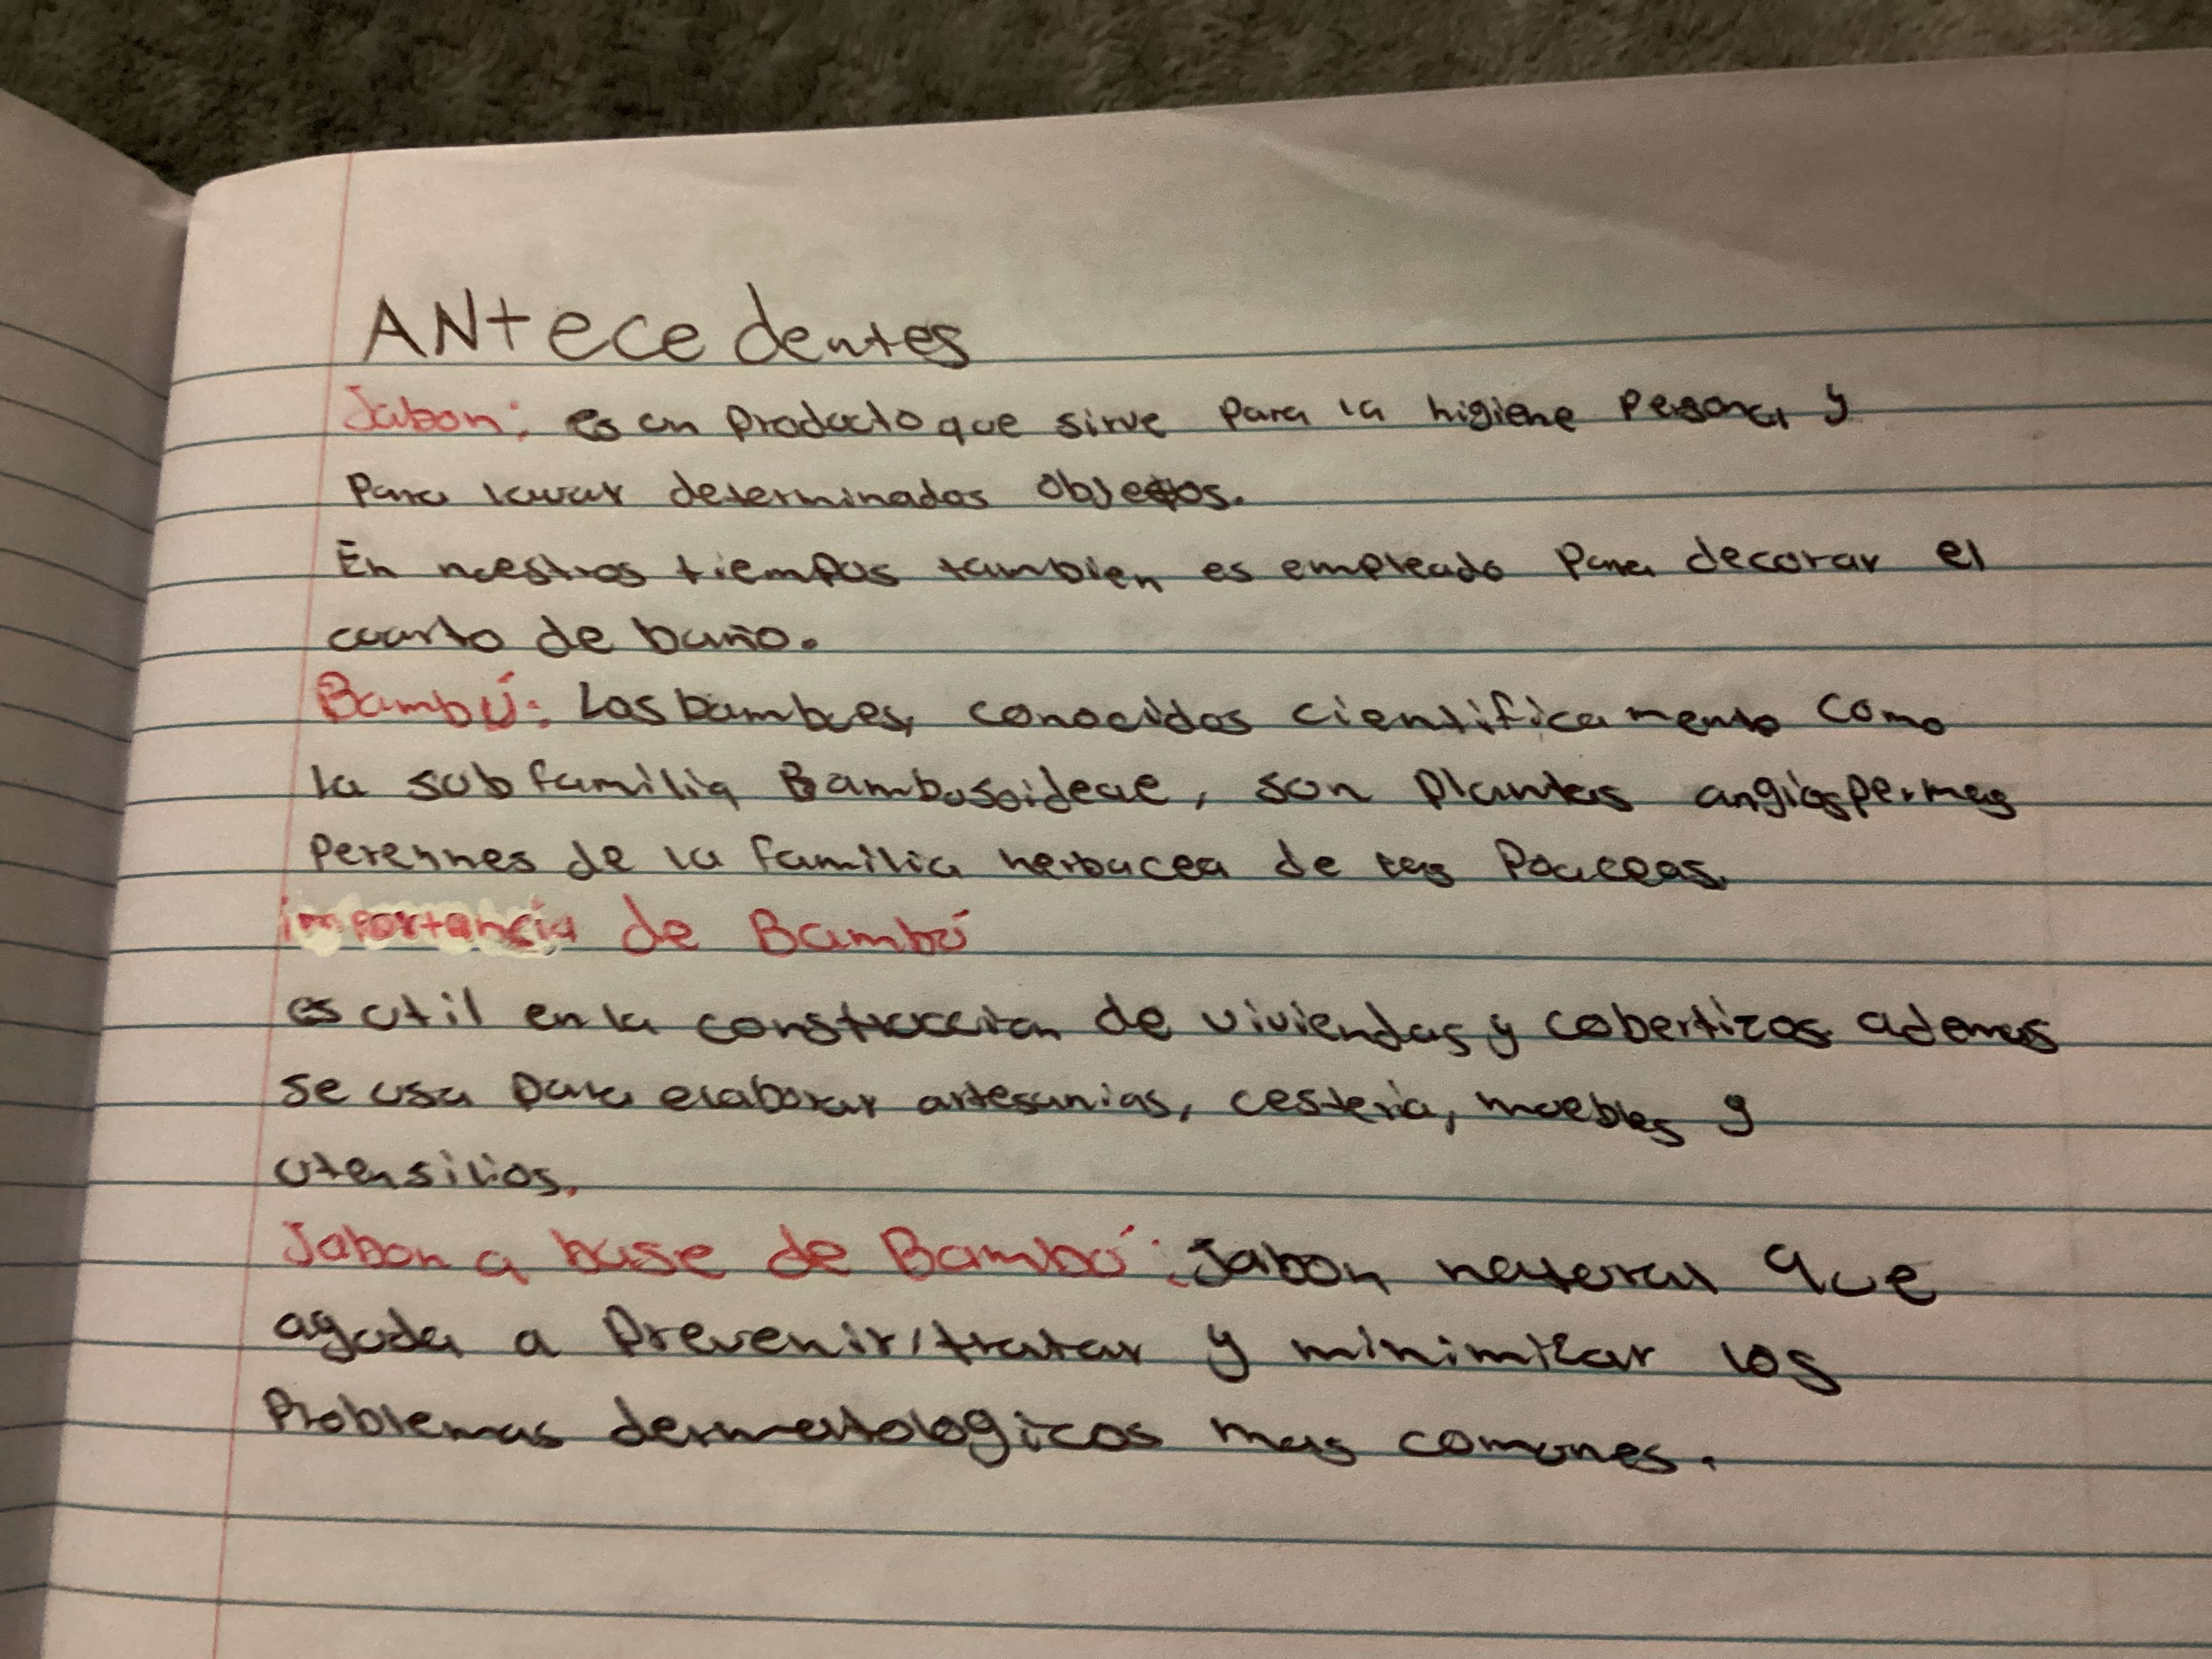 ANtecedentes
Jabon: es un producto que sirve para la higiene Personal y
Para lavar determinados objetos.
En nuestros tiempos tambien es empleado para decorar el
cuarto de baño.
Bambú: Los bambues, conocidos cientificamente como
la subfamilia Bambusoideae, son plantas angiospermas
Perennes de la familia herbacea de las Poaceas.
importancia de Bambú
es util en la construccion de viviendas y cobertizos ademas
se usa para elaborar artesanias, cesteria, muebles y
utensilios.
Jabon a base de Bambú: Jabon natural que
aguda a Prevenir/tratar y minimizar los
Problemas dermatologicos mas comunes.